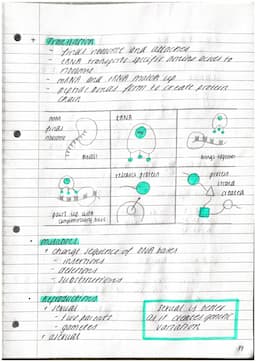 Translation
- finds ribosome and attaches
- tRNA transports specific amino acids to
ribosome
- mRNA and tRNA match up
- peptide bonds form to create protein
chain
finds
ribosome
tRNA
brings together
pairs up with
complementary base
releases protein
protein
created
mutations
• change sequence of DNA bases
- insertions
- deletions
- substitutions
reproductions
• sexual
- two parents
- gametes
• asexual
sexual is better
as it creates genetic
variation